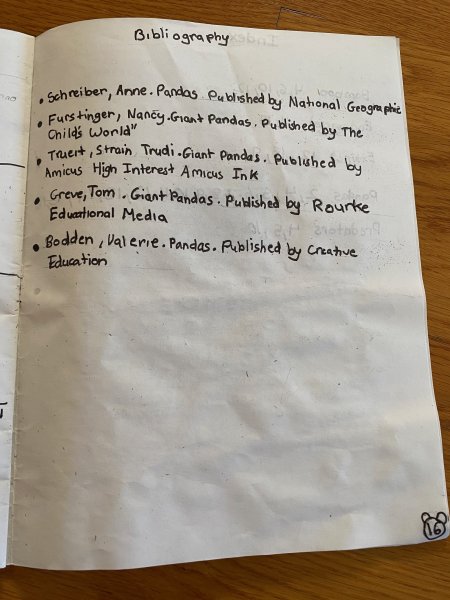 Bibliography
• Schreiber, Anne. Pandas Published by National Geographic
• Furstinger, Nancy. Giant Pandas. Published by The
Child's World"
• Truert, Strain Trudi. Giant Pandas. Published by
Amicus High Interest Amicus Ink
• Greve, Tom. Giant Pandas. Published by Rourke
Educational Media
• Bodden, Valerie. Pandas. Published by Creative
Education
16